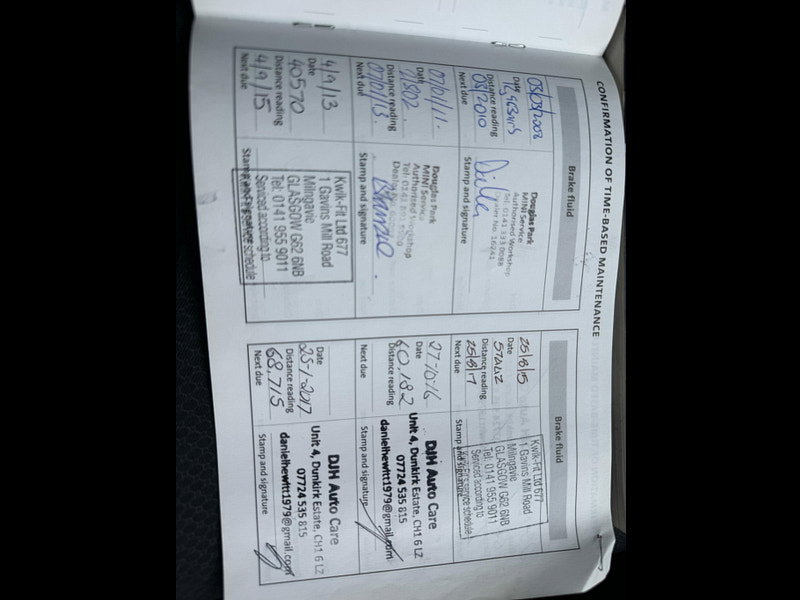 CONFIRMATION OF TIME-BASED MAINTENANCE
Brake fluid
03/03/2008
Date
Distance reading
03/2010
Next due
Douglas Park
MINI Service
Authorised Workshop
Tel: 0141 333 0088
Dealer No. 16241
Stamp and signature
07/01/11.
Date
Distance reading
07/01/13.
Next due
Douglas Park
MINI Service
Authorised Workshop
Stamp and signature
4/9/13
Date
40570
Distance reading
4/9/15
Next due
Kwik-Fit Ltd 677
1 Gavins Mill Road
Milngavie
GLASGOW G62 6NB
Tel: 0141 955 9011
Serviced according to
Stamp and signature
Brake fluid
25/8/15
Date
Distance reading
25/8/17
Next due
Kwik-Fit Ltd 677
1 Gavins Mill Road
Milngavie
GLASGOW G62 6NB
Tel: 0141 955 9011
Serviced according to
service schedule
Stamp and signature
27-10-16
Date
60,182
Distance reading
Next due
DJH Auto Care
Unit 4, Dunkirk Estate, CH1 6 LZ
07724 535 815
danielhewitt1979@gmail.com
Stamp and signature
Date
25-1-2017
Distance reading
68,715
Next due
DJH Auto Care
Unit 4, Dunkirk Estate, CH1 6 LZ
07724 535 815
danielhewitt1979@gmail.com
Stamp and signature